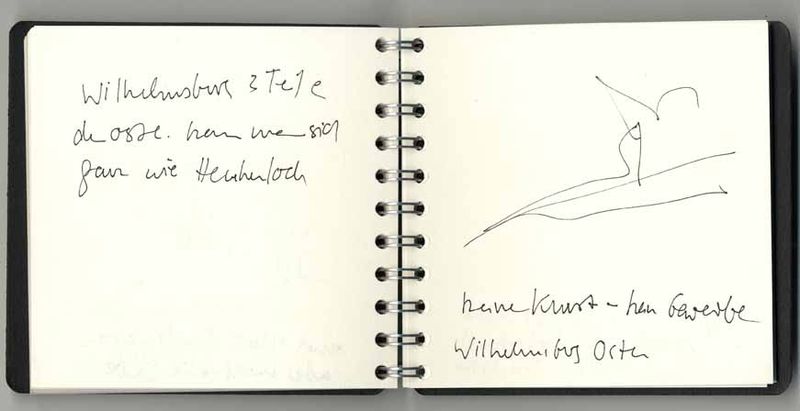 Wilhelmsburg 3 Teile
der osten. kann man sich
ganz wie
keine Kunst - kein Gewerbe
Wilhelmsburg Osten